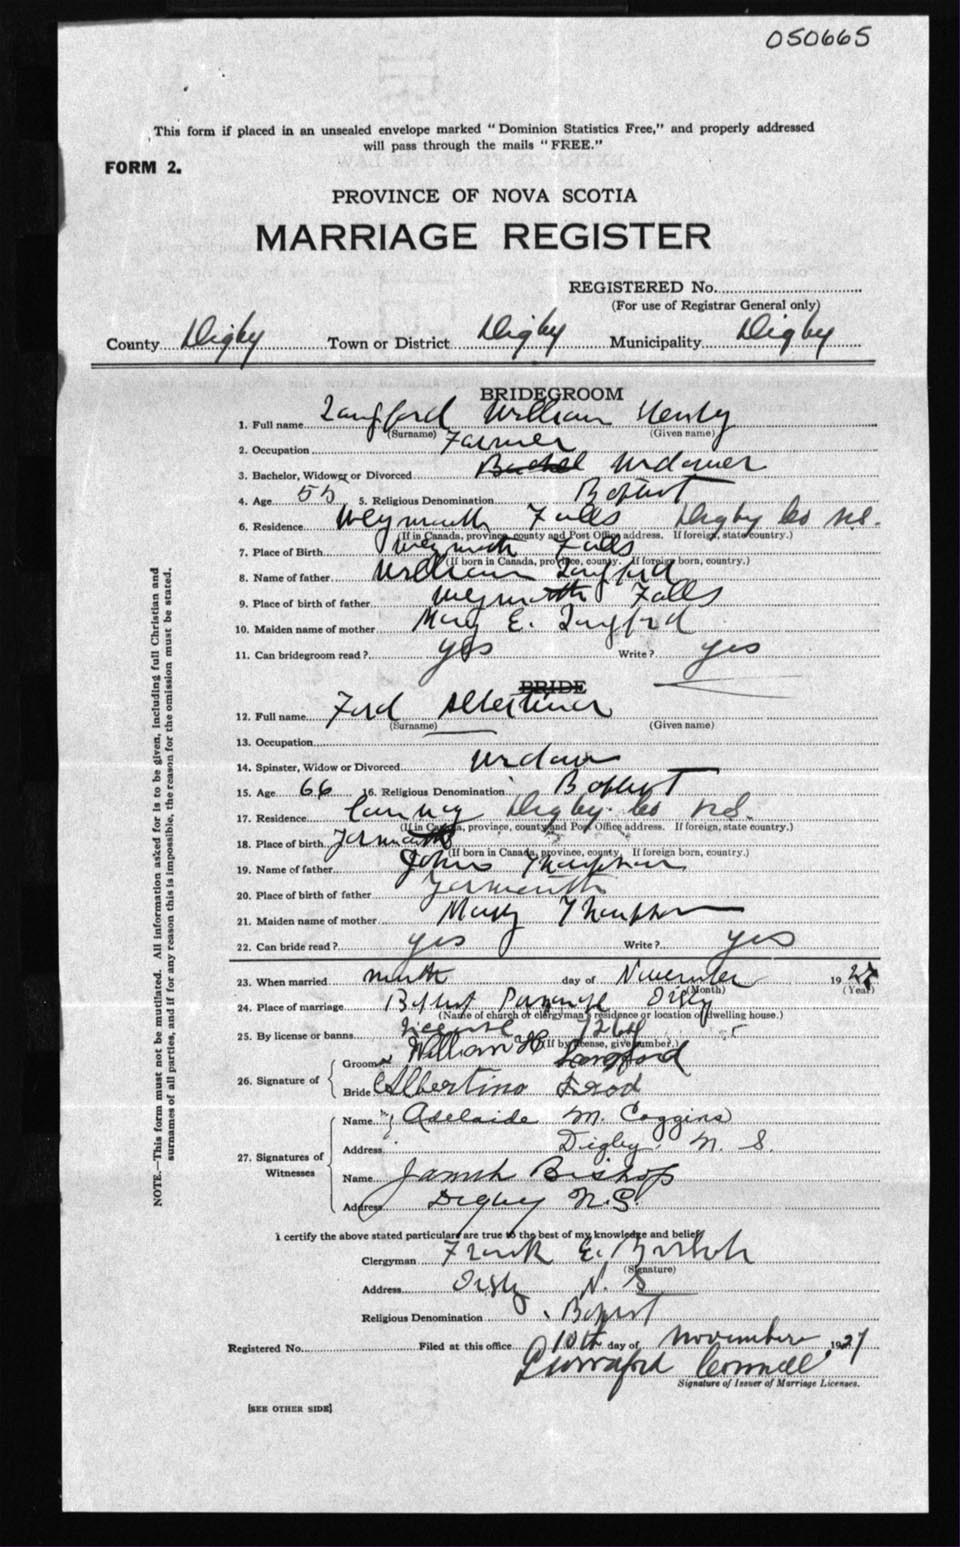 050665
This form if placed in an unsealed envelope marked "Dominion Statistics Free," and properly addressed
will pass through the mails "FREE."
FORM 2.
PROVINCE OF NOVA SCOTIA
MARRIAGE REGISTER
REGISTERED No.
(For use of Registrar General only)
County Digby Town or District Digby Municipality Digby
BRIDEGROOM
1. Full name Langford William Henry
(Surname) (Given name)
2. Occupation Farmer
3. Bachelor, Widower or Divorced Widower
4. Age 55 5. Religious Denomination Baptist
6. Residence Weymouth Falls Digby Co N.S.
(If in Canada, province, county and Post Office address. If foreign, state country.)
7. Place of Birth Weymouth Falls
(If born in Canada, province, county. If foreign born, country.)
8. Name of father William Langford
9. Place of birth of father Weymouth Falls
10. Maiden name of mother Mary E. Langford
11. Can bridegroom read? yes Write? yes
BRIDE
12. Full name Ford Albertina
(Surname) (Given name)
13. Occupation
14. Spinster, Widow or Divorced Widow
15. Age 66 16. Religious Denomination Baptist
17. Residence Digby Co N.S.
(If in Canada, province, county and Post Office address. If foreign, state country.)
18. Place of birth Yarmouth
(If born in Canada, province, county. If foreign born, country.)
19. Name of father John Thompson
20. Place of birth of father Yarmouth
21. Maiden name of mother Mary Thompson
22. Can bride read? yes Write? yes
23. When married ninth day of November 1927
(Month) (Year)
24. Place of marriage Baptist Parsonage Digby
(Name of church or clergyman's residence or location of dwelling house.)
25. By license or banns License
(If by license, give number.)
26. Signature of
Groom William H Langford
Bride Albertina
27. Signatures of Witnesses
Name Adelaide M. Coggins
Address Digby, N. S.
Name Bishop
Address Digby N.S.
I certify the above stated particulars are true to the best of my knowledge and belief
Clergyman Frank E.
(Signature)
Address Digby N. S
Religious Denomination Baptist
Registered No. Filed at this office 10th day of November 1927
Signature of Issuer of Marriage Licenses.
[SEE OTHER SIDE]
NOTE.—This form must not be mutilated. All information asked for is to be given, including full Christian and
surnames of all parties, and if for any reason this is impossible, the reason for the omission must be stated.